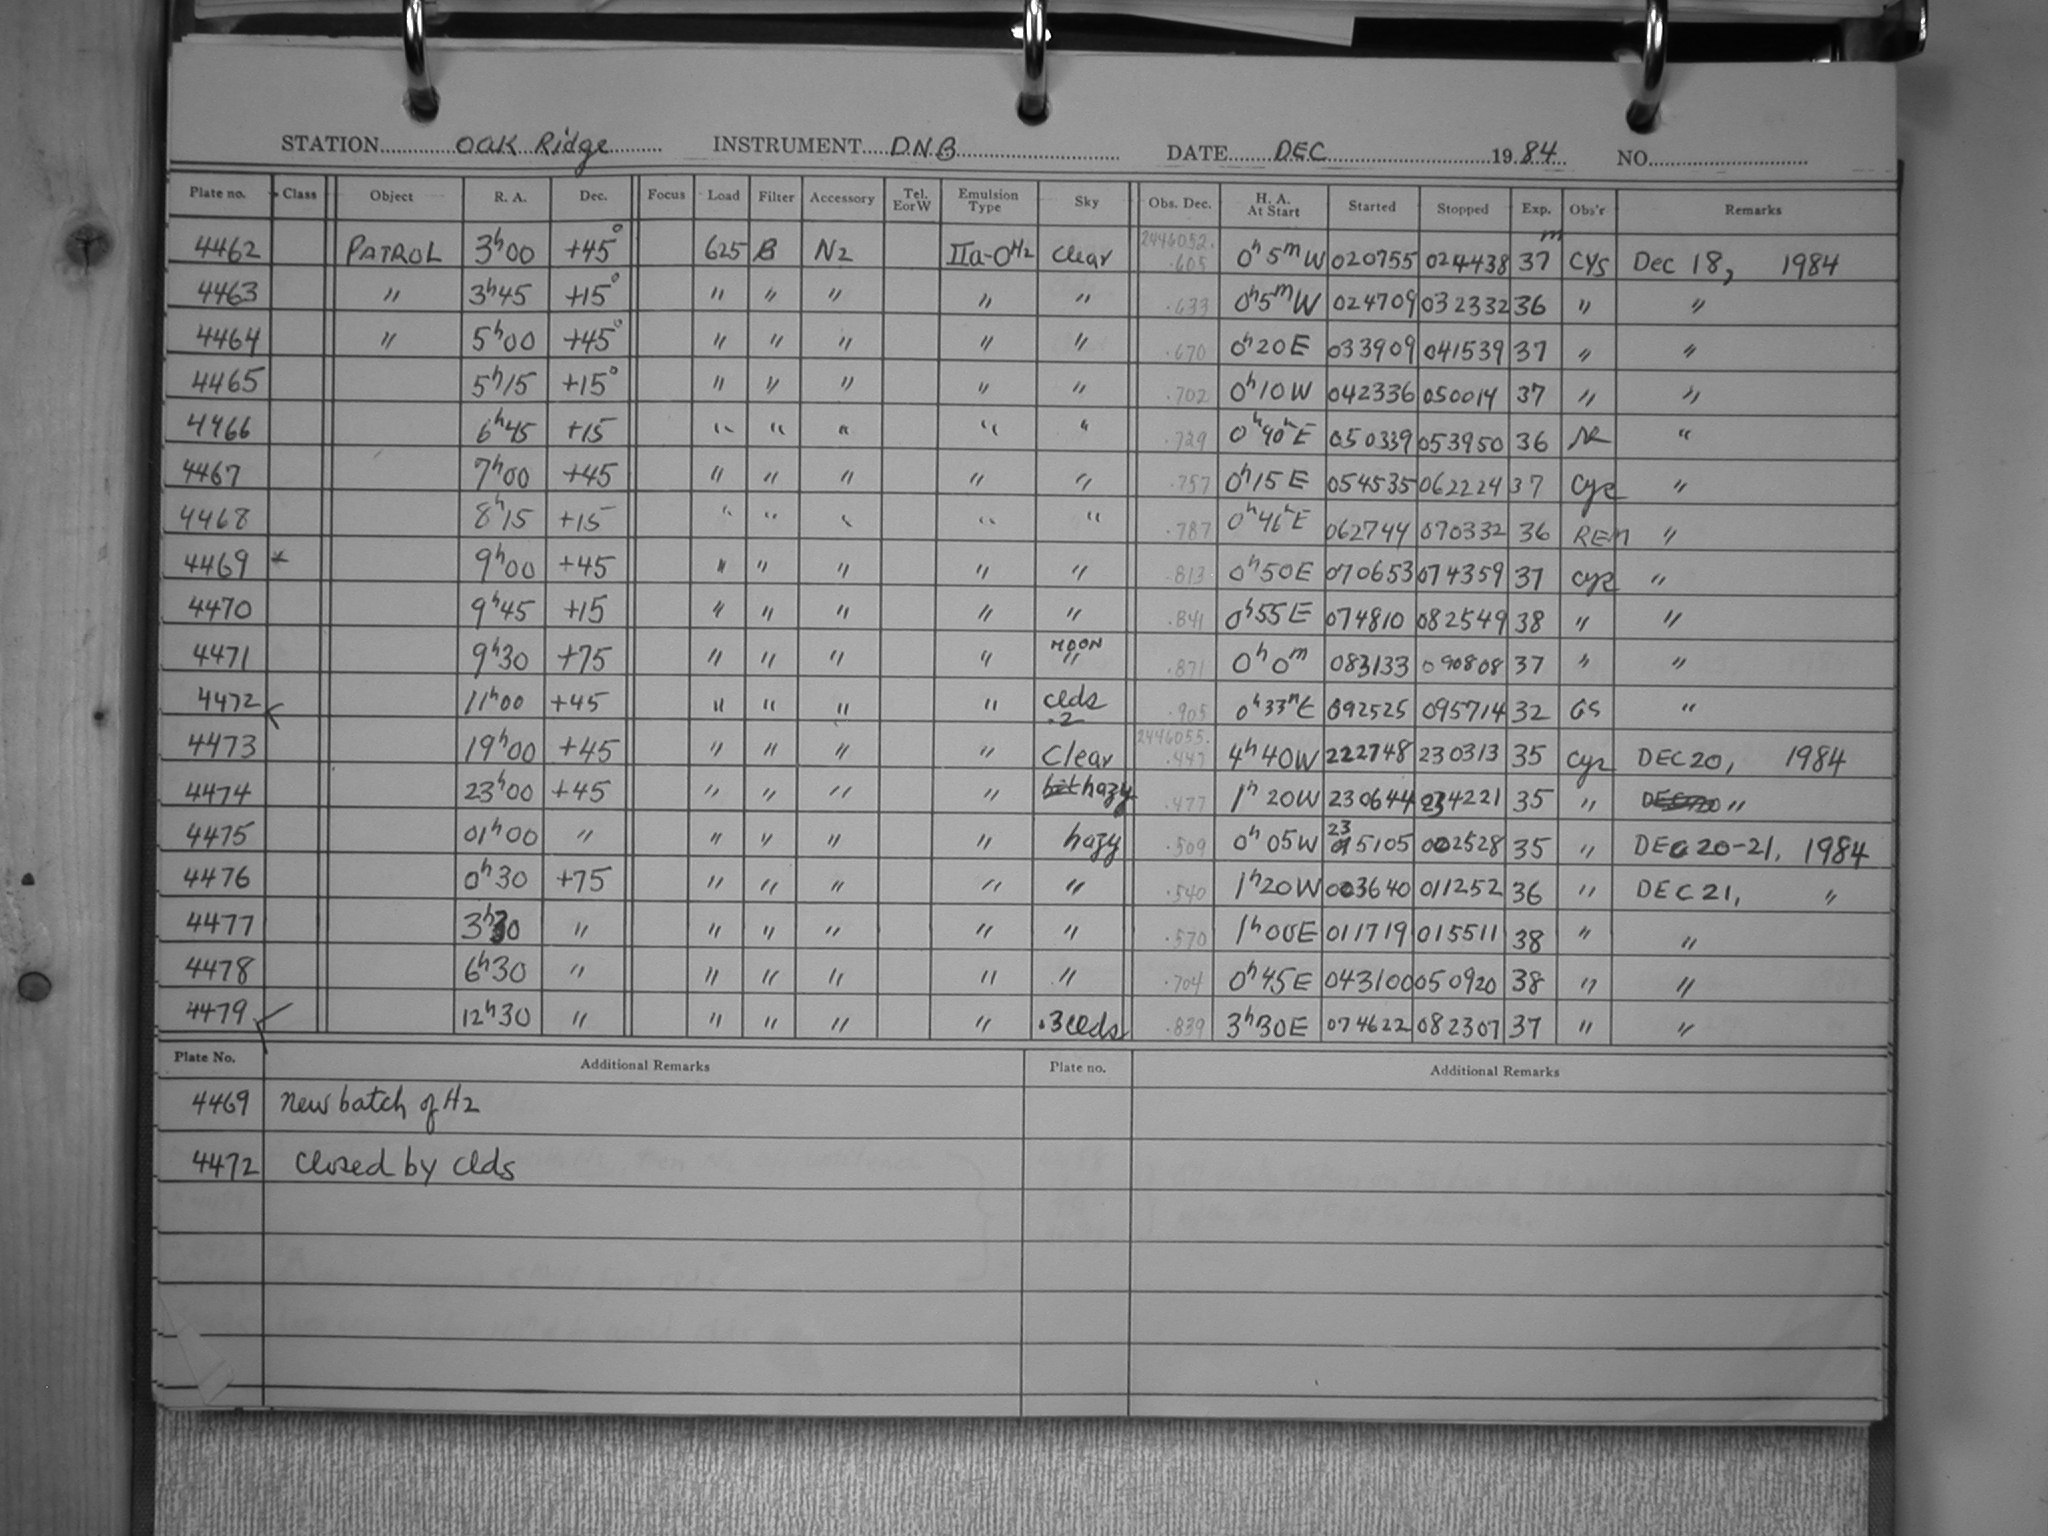 STATION OAK Ridge INSTRUMENT DNB DATE DEC 1984 NO.
Plate no. Class Object R. A. Dec. Focus Load Filter Accessory Tel. E or W Emulsion Type Sky Obs. Dec. H. A. At Start Started Stopped Exp. Obs'r Remarks
4462 PATROL 3h00 +45° 625 B N2 IIa-OH2 clear 2446052. .605 0h 5m W 020755 024438 37m CYS Dec 18, 1984
4463 " 3h45 +15° " " " " " .633 0h5mW 024709 032332 36 " "
4464 " 5h00 +45° " " " " " .670 0h20E 033909 041539 37 " "
4465 5h15 +15° " " " " " .702 0h10W 042336 050014 37 " "
4466 6h45 +15 " " " " " .729 0h40E 050339 053950 36 "
4467 7h00 +45 " " " " " .757 0h15E 054535 062224 37 Cyr "
4468 8h15 +15 " " " " " .787 0h46E 062744 070332 36 REM "
4469 * 9h00 +45 " " " " " .813 0h50E 070653 074359 37 Cyr "
4470 9h45 +15 " " " " " .841 0h55E 074810 082549 38 " "
4471 9h30 +75 " " " " MOON " .871 0h0m 083133 090808 37 " "
4472 11h00 +45 " " " " clds .2 .905 0h33mE 092525 095714 32 GS "
4473 19h00 +45 " " " " Clear 2446055. .447 4h40W 222748 230313 35 Cyr DEC 20, 1984
4474 23h00 +45 " " " " hazy .477 1h20W 230644 234221 35 " "
4475 01h00 " " " " " hazy .509 0h05W 235105 002528 35 " DEC 20-21, 1984
4476 0h30 +75 " " " " " .540 1h20W 003640 011252 36 " DEC 21, "
4477 3h30 " " " " " " .570 1h00E 011719 015511 38 " "
4478 6h30 " " " " " " .704 0h45E 043100 050920 38 " "
4479 12h30 " " " " " .3 clds .839 3h30E 074622 082307 37 " "
Plate No. Additional Remarks Plate no. Additional Remarks
4469 new batch of H2
4472 Closed by Clds